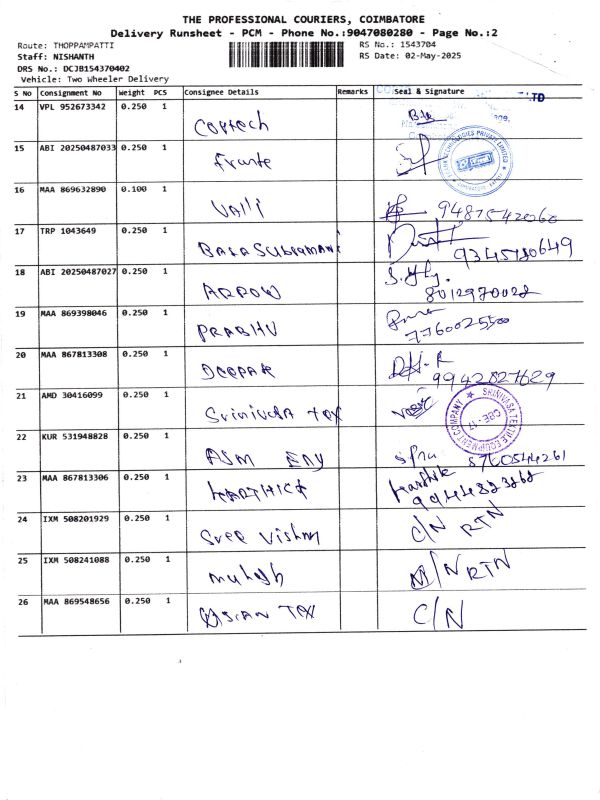 THE PROFESSIONAL COURIERS, COIMBATORE
Delivery Runsheet - PCM - Phone No.:9047080280 - Page No.:2
Route: THOPPAMPATTI RS No.: 1543704
Staff: NISHANTH RS Date: 02-May-2025
DRS No.: DCJB154370402
Vehicle: Two Wheeler Delivery
S No Consignment No Weight PCS Consignee Details Remarks Seal & Signature
14 VPL 952673342 0.250 1 LTD
15 ABI 20250487033 0.250 1
16 MAA 869632890 0.100 1 Valli 9487542060
17 TRP 1043649 0.250 1 BalaSubramani 9345780649
18 ABI 20250487027 0.250 1 ARROW 8012970028
19 MAA 869398046 0.250 1 PRABHU 7760025500
20 MAA 867813308 0.250 1 DEEPAK 9942827629
21 AMD 30416099 0.250 1 Tex
SRINIVASA TEXTILE EQUIPMENT COMPANY
CBE - 17
22 KUR 531948828 0.250 1 ASM 8760544261
23 MAA 867813306 0.250 1 KARTHICK Karthik
9944823268
24 IXM 508201929 0.250 1 Sree Vishnu C/N RTN
25 IXM 508241088 0.250 1 RTN
26 MAA 869548656 0.250 1 ASIAN TEX C/N